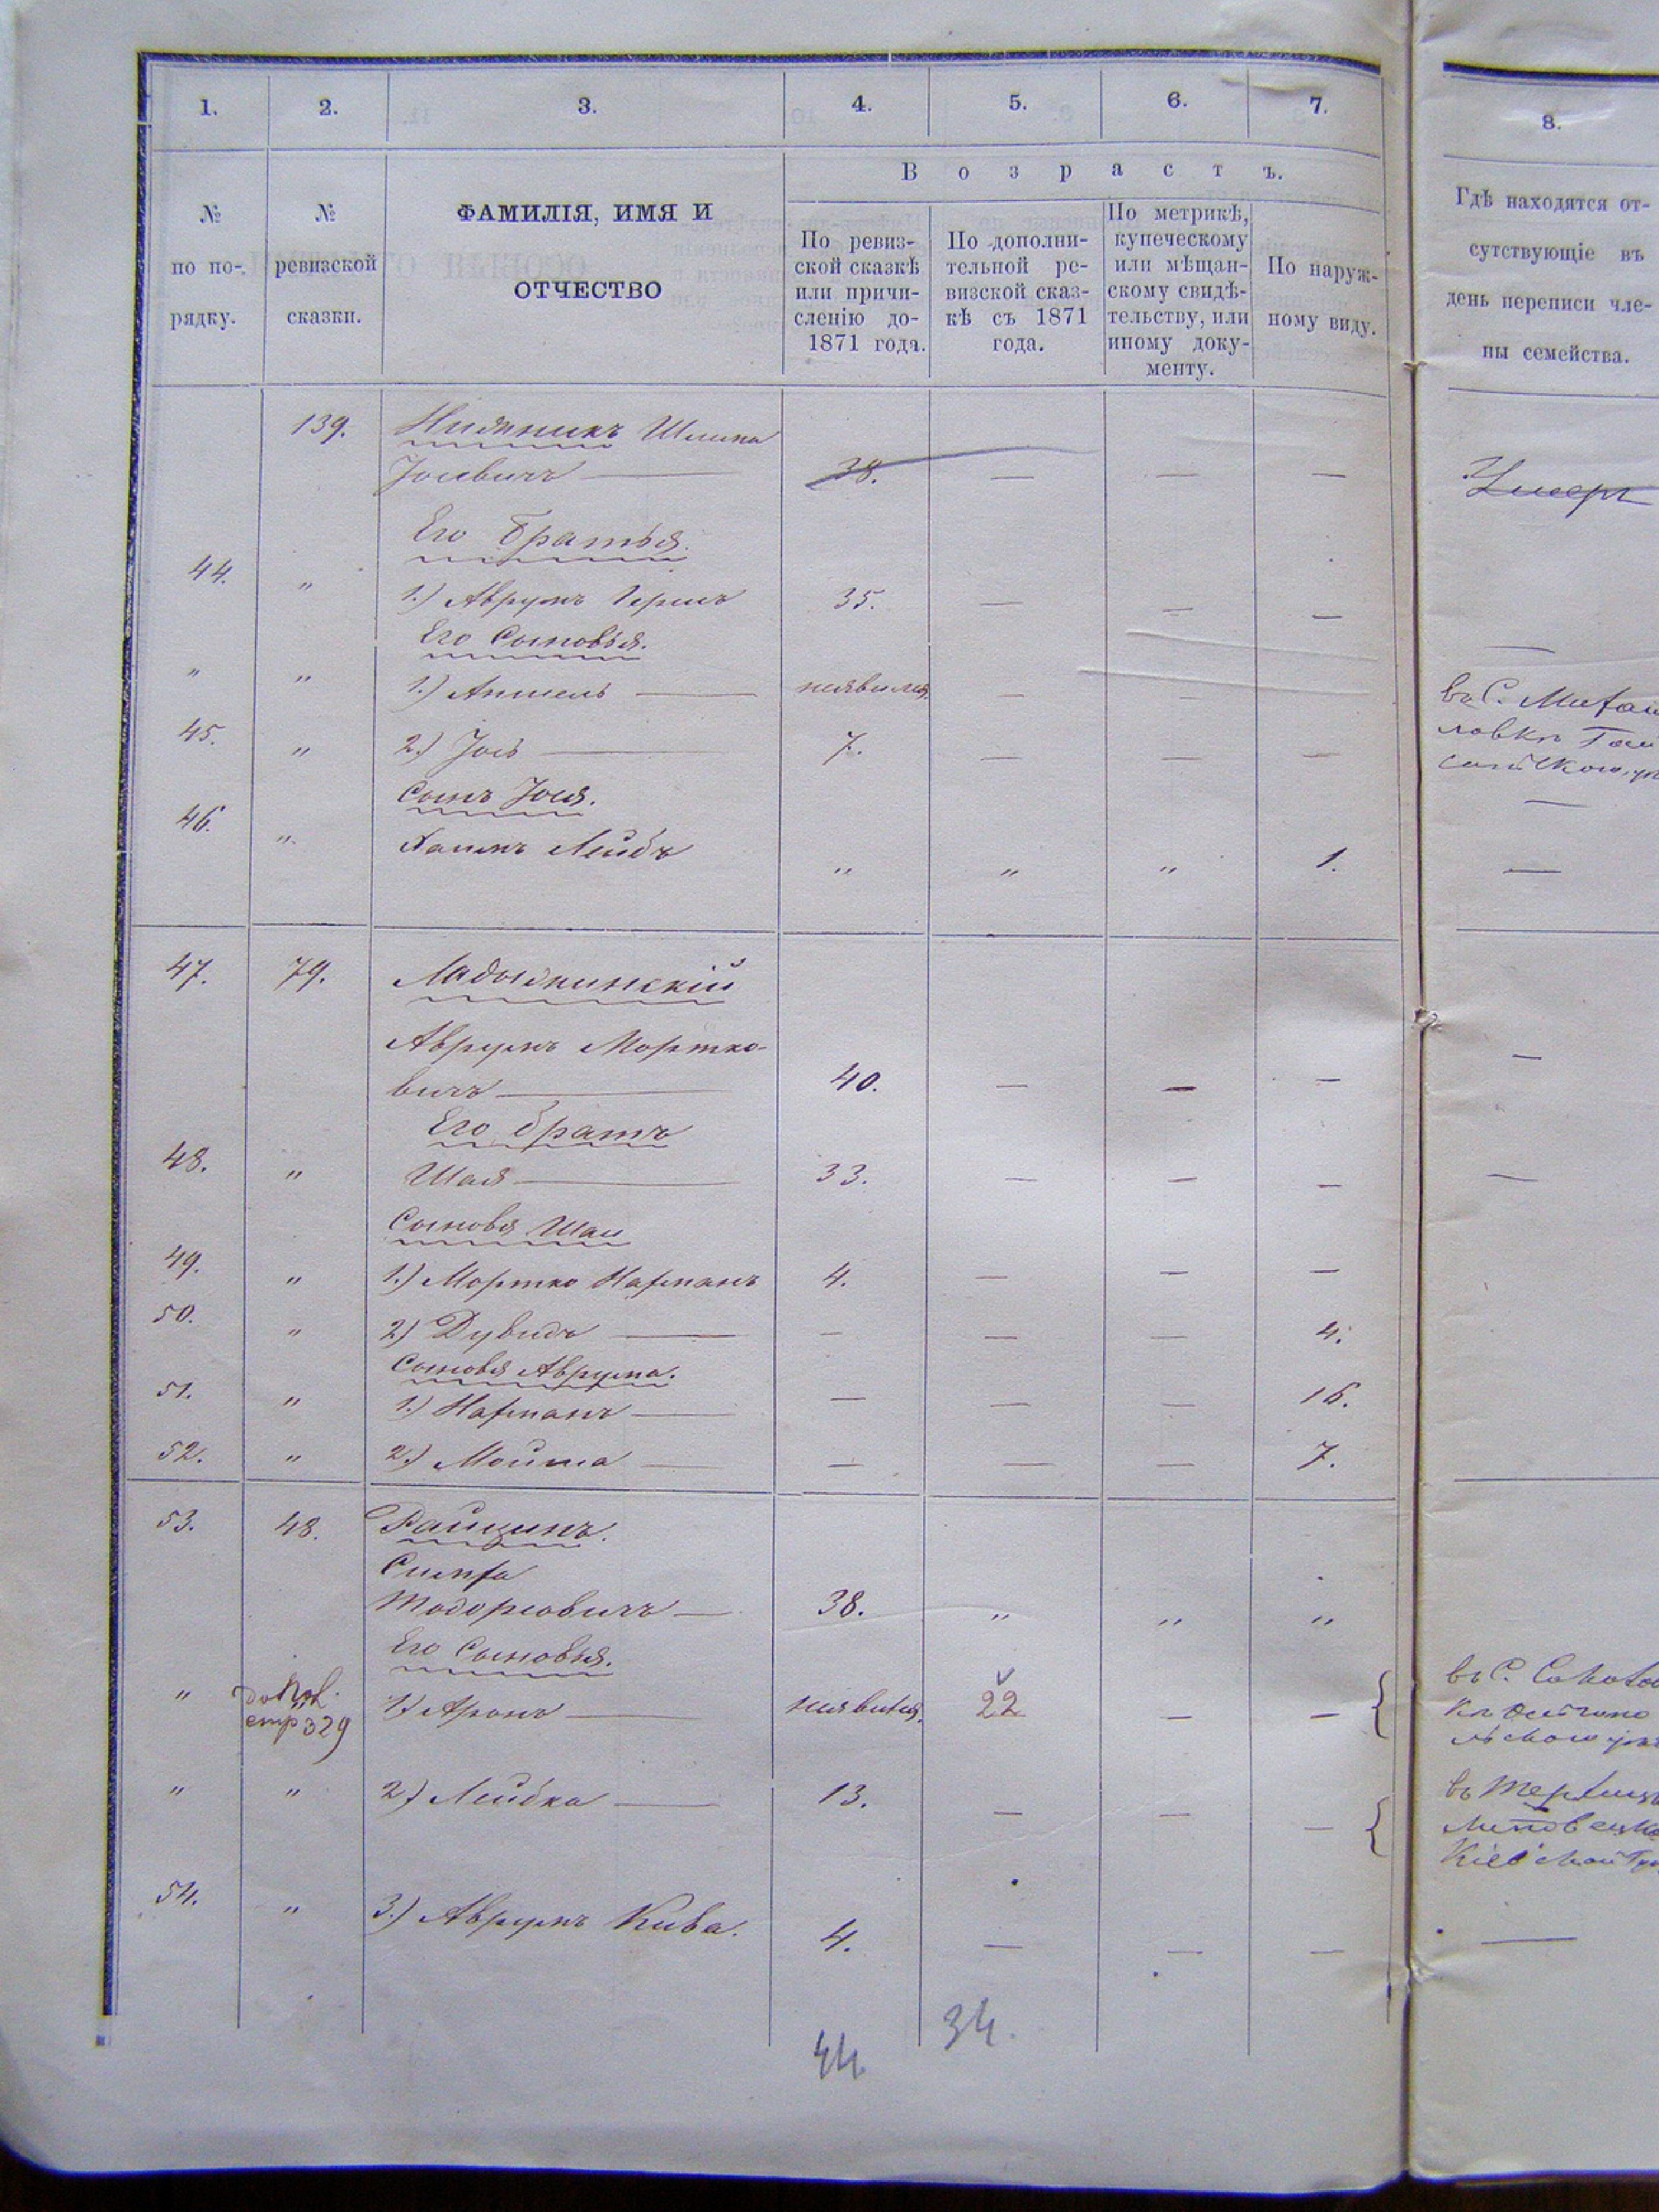 1. 2. 3. 4. 5. 6. 7. 8.
№ по по-рядку.
№ ревизской сказки.
ФАМИЛІЯ, ИМЯ И
ОТЧЕСТВО
Возрастъ.
По ревиз-
ской сказкѣ
или причи-
сленію до-
1871 года.
По дополни-
тельной ре-
визской сказ-
кѣ съ 1871
года.
По метрикѣ,
купеческому
или мѣщан-
скому свидѣ-
тельству, или
иному доку-
менту.
По наруж-
ному виду.
Гдѣ находятся от-
сутствующіе въ
день переписи чле-
ны семейства.
139. Шлиома
Іосевичъ — 38. — — — Умеръ
Его братья.
44. " 1.) Аврумъ Гершъ 35. — — — —
Его Сыновья.
" " 1.) Аншель — неявился — — въ С. Михай
45. " 2.) Іось — 7. — — — ловкѣ Гай
Сынъ Іося.
46. " Хаимъ Лейбъ " " " 1. —
47. 79. Ладыжинскій
Аврумъ Мортко-
вичъ — 40. — — — —
Его братъ
48. " Шая — 33. — — — —
Сыновя Шаи
49. " 1.) Мортко Нахманъ 4. — — —
50. " 2) Дувидъ — — — — 4.
Сыновя Аврума.
51. " 1.) Нахманъ — — — — 16.
52. " 2.) Мойша — — — — 7.
53. 48. Райцинъ.
Симха
Тодоровичъ — 38. " " "
Его Сыновья.
" стр 329 1) Аронъ — неявился. 22 — — въ С.
" " 2) Лейбка — 13. — — — въ
Липовецка
Кіевской Гу
54. " 3.) Аврумъ Кива. 4. — — — —
44 34.